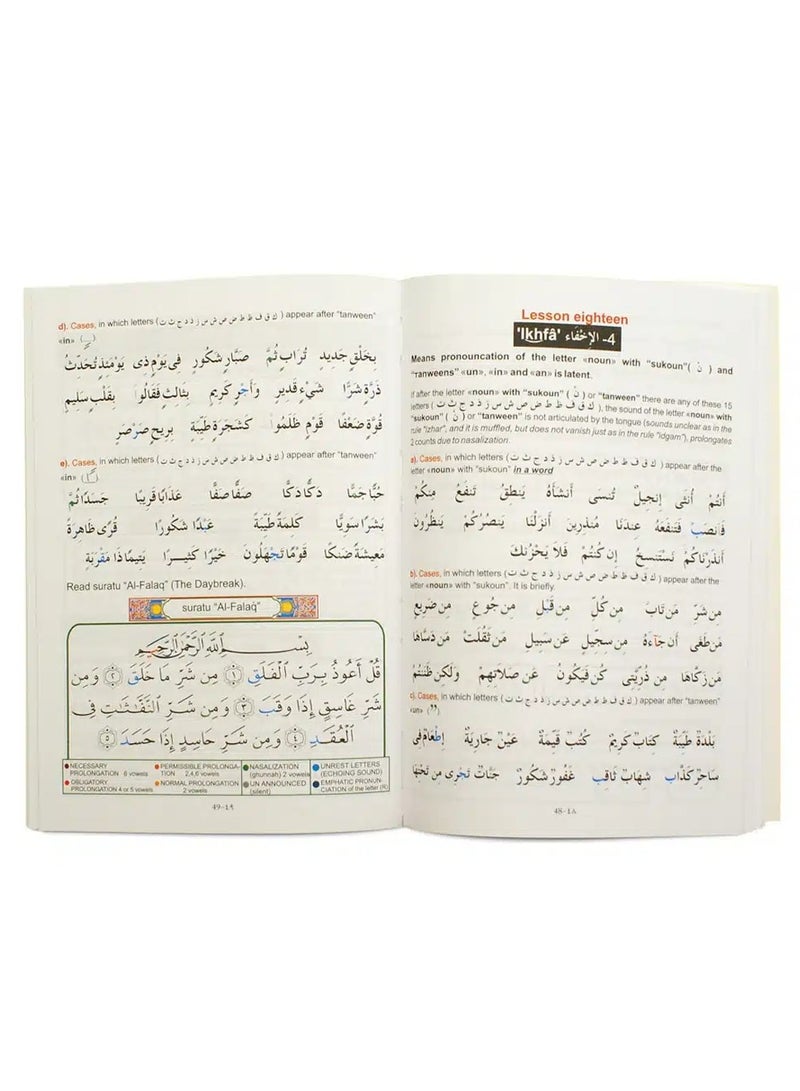 Lesson eighteen
4- الإِخْفَاء 'Ikhfâ'
Means pronouncation of the letter «noun» with "sukoun"( نْ ) and
"ranweens" «un», «in» and «an» is latent.
if after the letter «noun» with "sukoun" ( نْ ) or "tanween" there are any of these 15
letters ( ك ق ف ظ ط ض ص ش س ز ذ د ج ث ت ), the sound of the letter «noun» with
"sukoun" ( نْ ) or "tanween" is not articulated by the tongue (sounds unclear as in the
rule "izhar", and it is muffled, but does not vanish just as in the rule "idgam"), prolongates
2 counts due to nasalization.
a). Cases, in which letters ( ك ق ف ظ ط ض ص ش س ز ذ د ج ث ت ) appear after the
letter «noun» with "sukoun" in a word
أَنتُمْ أُنثَى إِنجِيلٌ تُنسَى أَنشَأَهُ يَنطِقُ تَنفَعُ مِنكُمْ
فَانصَبْ فَتَنفَعَهُ عِندَنَا مُنذِرِينَ أَنزَلْنَا يَنصُرُكُمْ يَنظُرُونَ
أَنذَرْنَاكُمْ نَسْتَنسِخُ إِن كُنتُمْ فَلَا يَحْزُنكَ
b). Cases, in which letters ( ك ق ف ظ ط ض ص ش س ز ذ د ج ث ت ) appear after the
letter «noun» with "sukoun". It is briefly.
مِن شَرِّ مَن تَابَ مِن كُلِّ مِن قَبْلِ مِن جُوعٍ مِن ضَرِيعٍ
مَن طَغَى أَن جَآءَهُ مِن سِجِّيلٍ عَن سَبِيلِ مَن ثَقُلَتْ مَن دَسَّاهَا
مَن زَكَّاهَا مِن ذُرِّيَّتِي كُن فَيَكُونُ عَن صَلَاتِهِمْ وَلَكِن ظَنَنتُمْ
c). Cases, in which letters ( ك ق ف ظ ط ض ص ش س ز ذ د ج ث ت ) appear after "tanween"
«un»
بَلْدَةٌ طَيِّبَةٌ كِتَابٌ كَرِيمٌ كُتُبٌ قَيِّمَةٌ عَيْنٌ جَارِيَةٌ إِطْعَامٌ فِى
سَاحِرٌ كَذَّابٌ شِهَابٌ ثَاقِبٌ غَفُورٌ شَكُورٌ جَنَّاتٌ تَجْرِى مِن تَحْتِهَا
48-٤٨
d). Cases, in which letters ( ك ق ف ظ ط ض ص ش س ز ذ د ج ث ت ) appear after "tanween"
«in»
بِخَلْقٍ جَدِيدٍ تُرَابٍ ثُمَّ صَبَّارٍ شَكُورٍ فِى يَوْمٍ ذِى يَوْمَئِذٍ تُحَدِّثُ
ذَرَّةٍ شَرًّا شَىْءٍ قَدِيرٌ وَأَجْرٍ كَرِيمٍ بِثَالِثٍ فَقَالُوا بِقَلْبٍ سَلِيمٍ
قُوَّةٍ ضَعْفًا قَوْمٍ ظَلَمُوا كَشَجَرَةٍ طَيِّبَةٍ بِرِيحٍ صَرْصَرٍ
e). Cases, in which letters ( ك ق ف ظ ط ض ص ش س ز ذ د ج ث ت ) appear after "tanween"
«in»
حُبًّا جَمًّا دَكًّا دَكًّا صَفًّا صَفًّا عَذَابًا قَرِيبًا جَسَدًا ثُمَّ
بَشَرًا سَوِيًّا كَلِمَةً طَيِّبَةً عَبْدًا شَكُورًا قُرًى ظَاهِرَةً
مَعِيشَةً ضَنكًا قَوْمًا تَجْهَلُونَ خَيْرًا كَثِيرًا يَتِيمًا ذَا مَقْرَبَةٍ
Read suratu "Al-Falaq" (The Daybreak).
suratu "Al-Falaq"
بِسْمِ اللَّهِ الرَّحْمَنِ الرَّحِيمِ
قُلْ أَعُوذُ بِرَبِّ الْفَلَقِ ١ مِن شَرِّ مَا خَلَقَ ٢ وَمِن
شَرِّ غَاسِقٍ إِذَا وَقَبَ ٣ وَمِن شَرِّ النَّفَّاثَاتِ فِى
الْعُقَدِ ٤ وَمِن شَرِّ حَاسِدٍ إِذَا حَسَدَ ٥
NECESSARY PROLONGATION 6 vowels
PERMISSIBLE PROLONGATION 2,4,6 vowels
NASALIZATION (ghunnah) 2 vowels
UNREST LETTERS (ECHOING SOUND)
OBLIGATORY PROLONGATION 4 or 5 vowels
NORMAL PROLONGATION 2 vowels
UN ANNOUNCED (silent)
EMPHATIC PRONONCIATION of the letter (R)